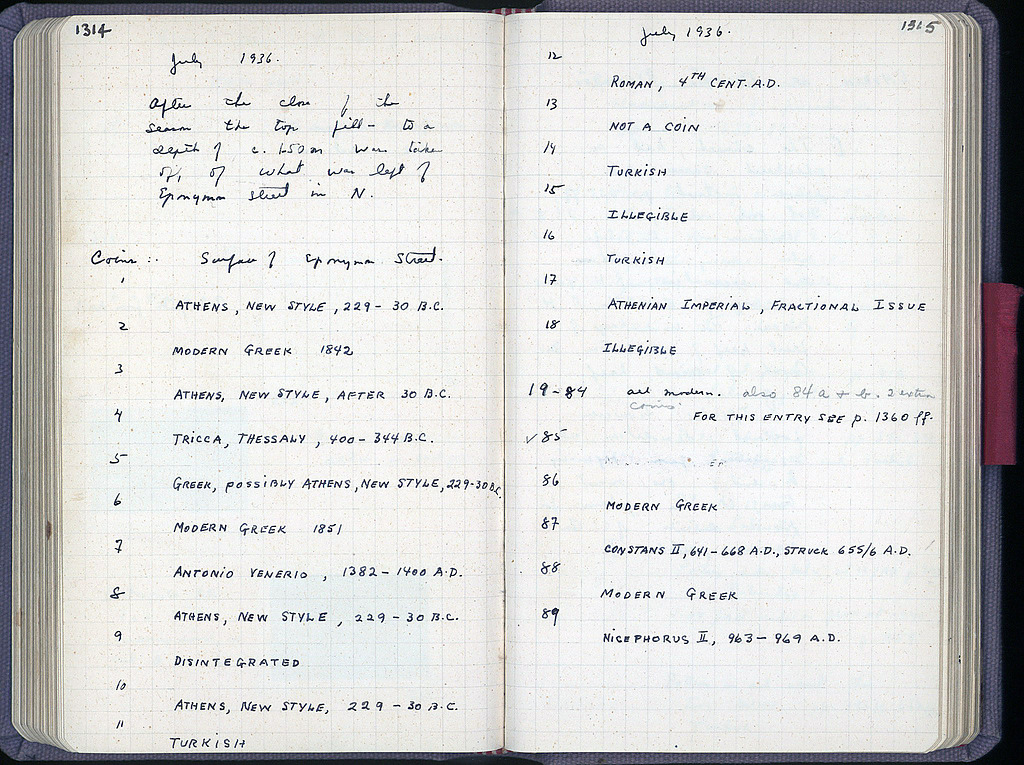 1314
July 1936.
After the close of the
season the top fill - to a
depth of c. 1.50m was taken
off, of what was left of
Eponymon street in N.
Coins:. Surface of Eponymon Street.
1
ATHENS, NEW STYLE, 229 - 30 B.C.
2
MODERN GREEK 1842
3
ATHENS, NEW STYLE, AFTER 30 B.C.
4
TRICCA, THESSALY, 400 - 344 B.C.
5
GREEK, POSSIBLY ATHENS, NEW STYLE, 229-30 B.C.
6
MODERN GREEK 1851
7
ANTONIO VENERIO, 1382 - 1400 A.D.
8
ATHENS, NEW STYLE, 229 - 30 B.C.
9
DISINTEGRATED
10
ATHENS, NEW STYLE, 229 - 30 B.C.
11
TURKISH
1315
July 1936.
12
ROMAN, 4TH CENT. A.D.
13
NOT A COIN
14
TURKISH
15
ILLEGIBLE
16
TURKISH
17
ATHENIAN IMPERIAL, FRACTIONAL ISSUE
18
ILLEGIBLE
19-84 all modern. also 84 a + b. 2 extra
coins.
FOR THIS ENTRY SEE p. 1360 ff.
✓ 85
86
MODERN GREEK
87
CONSTANS II, 641-668 A.D., STRUCK 655/6 A.D.
88
MODERN GREEK
89
NICEPHORUS II, 963 - 969 A.D.